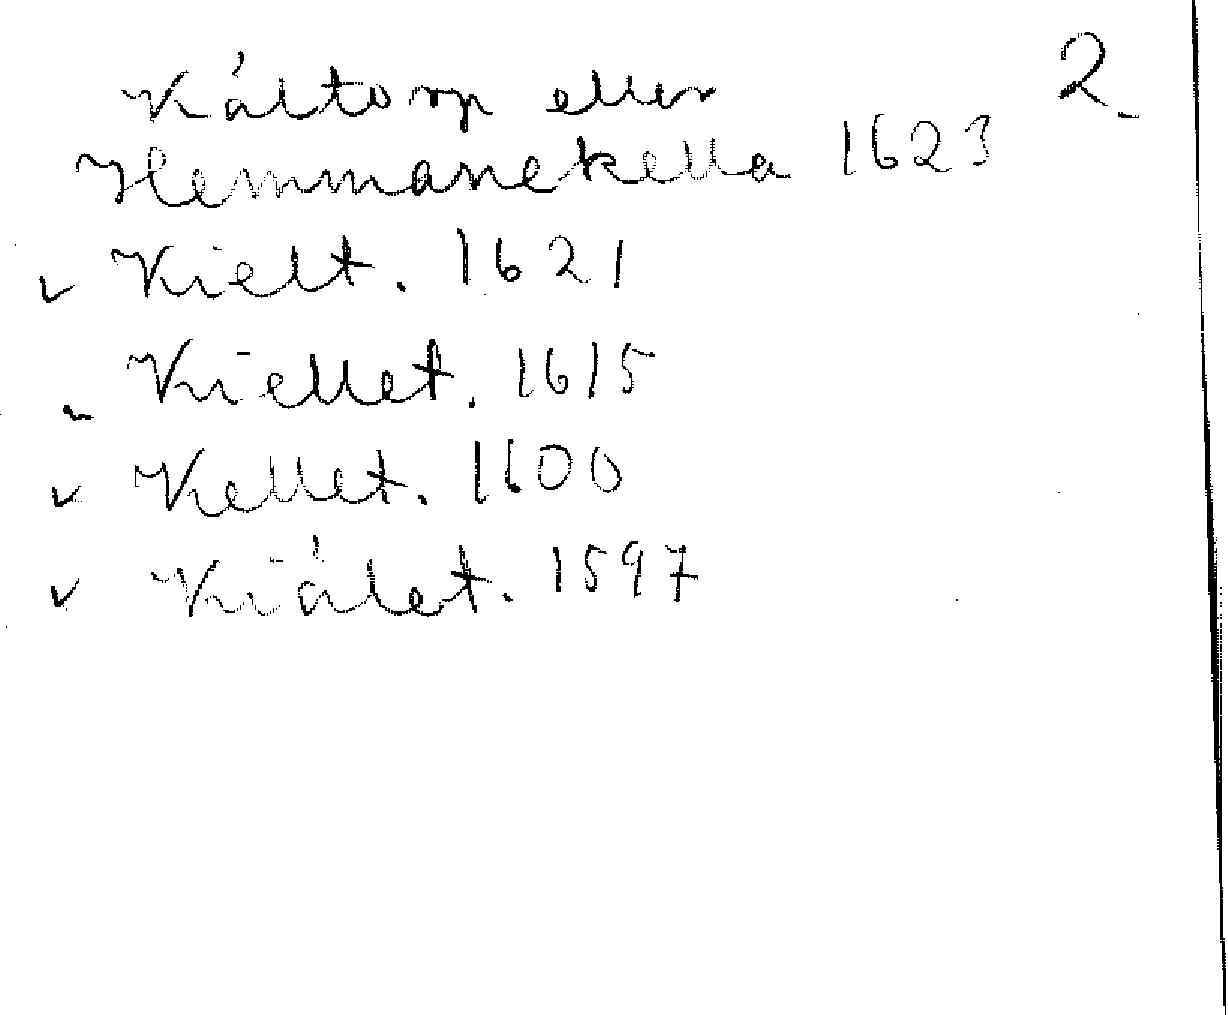 2.
Kåltorp eller
Hemmanekella 1623
v Kielt. 1621
v Kiellet. 1615
v Kellet. 1600
v Kiålet. 1597